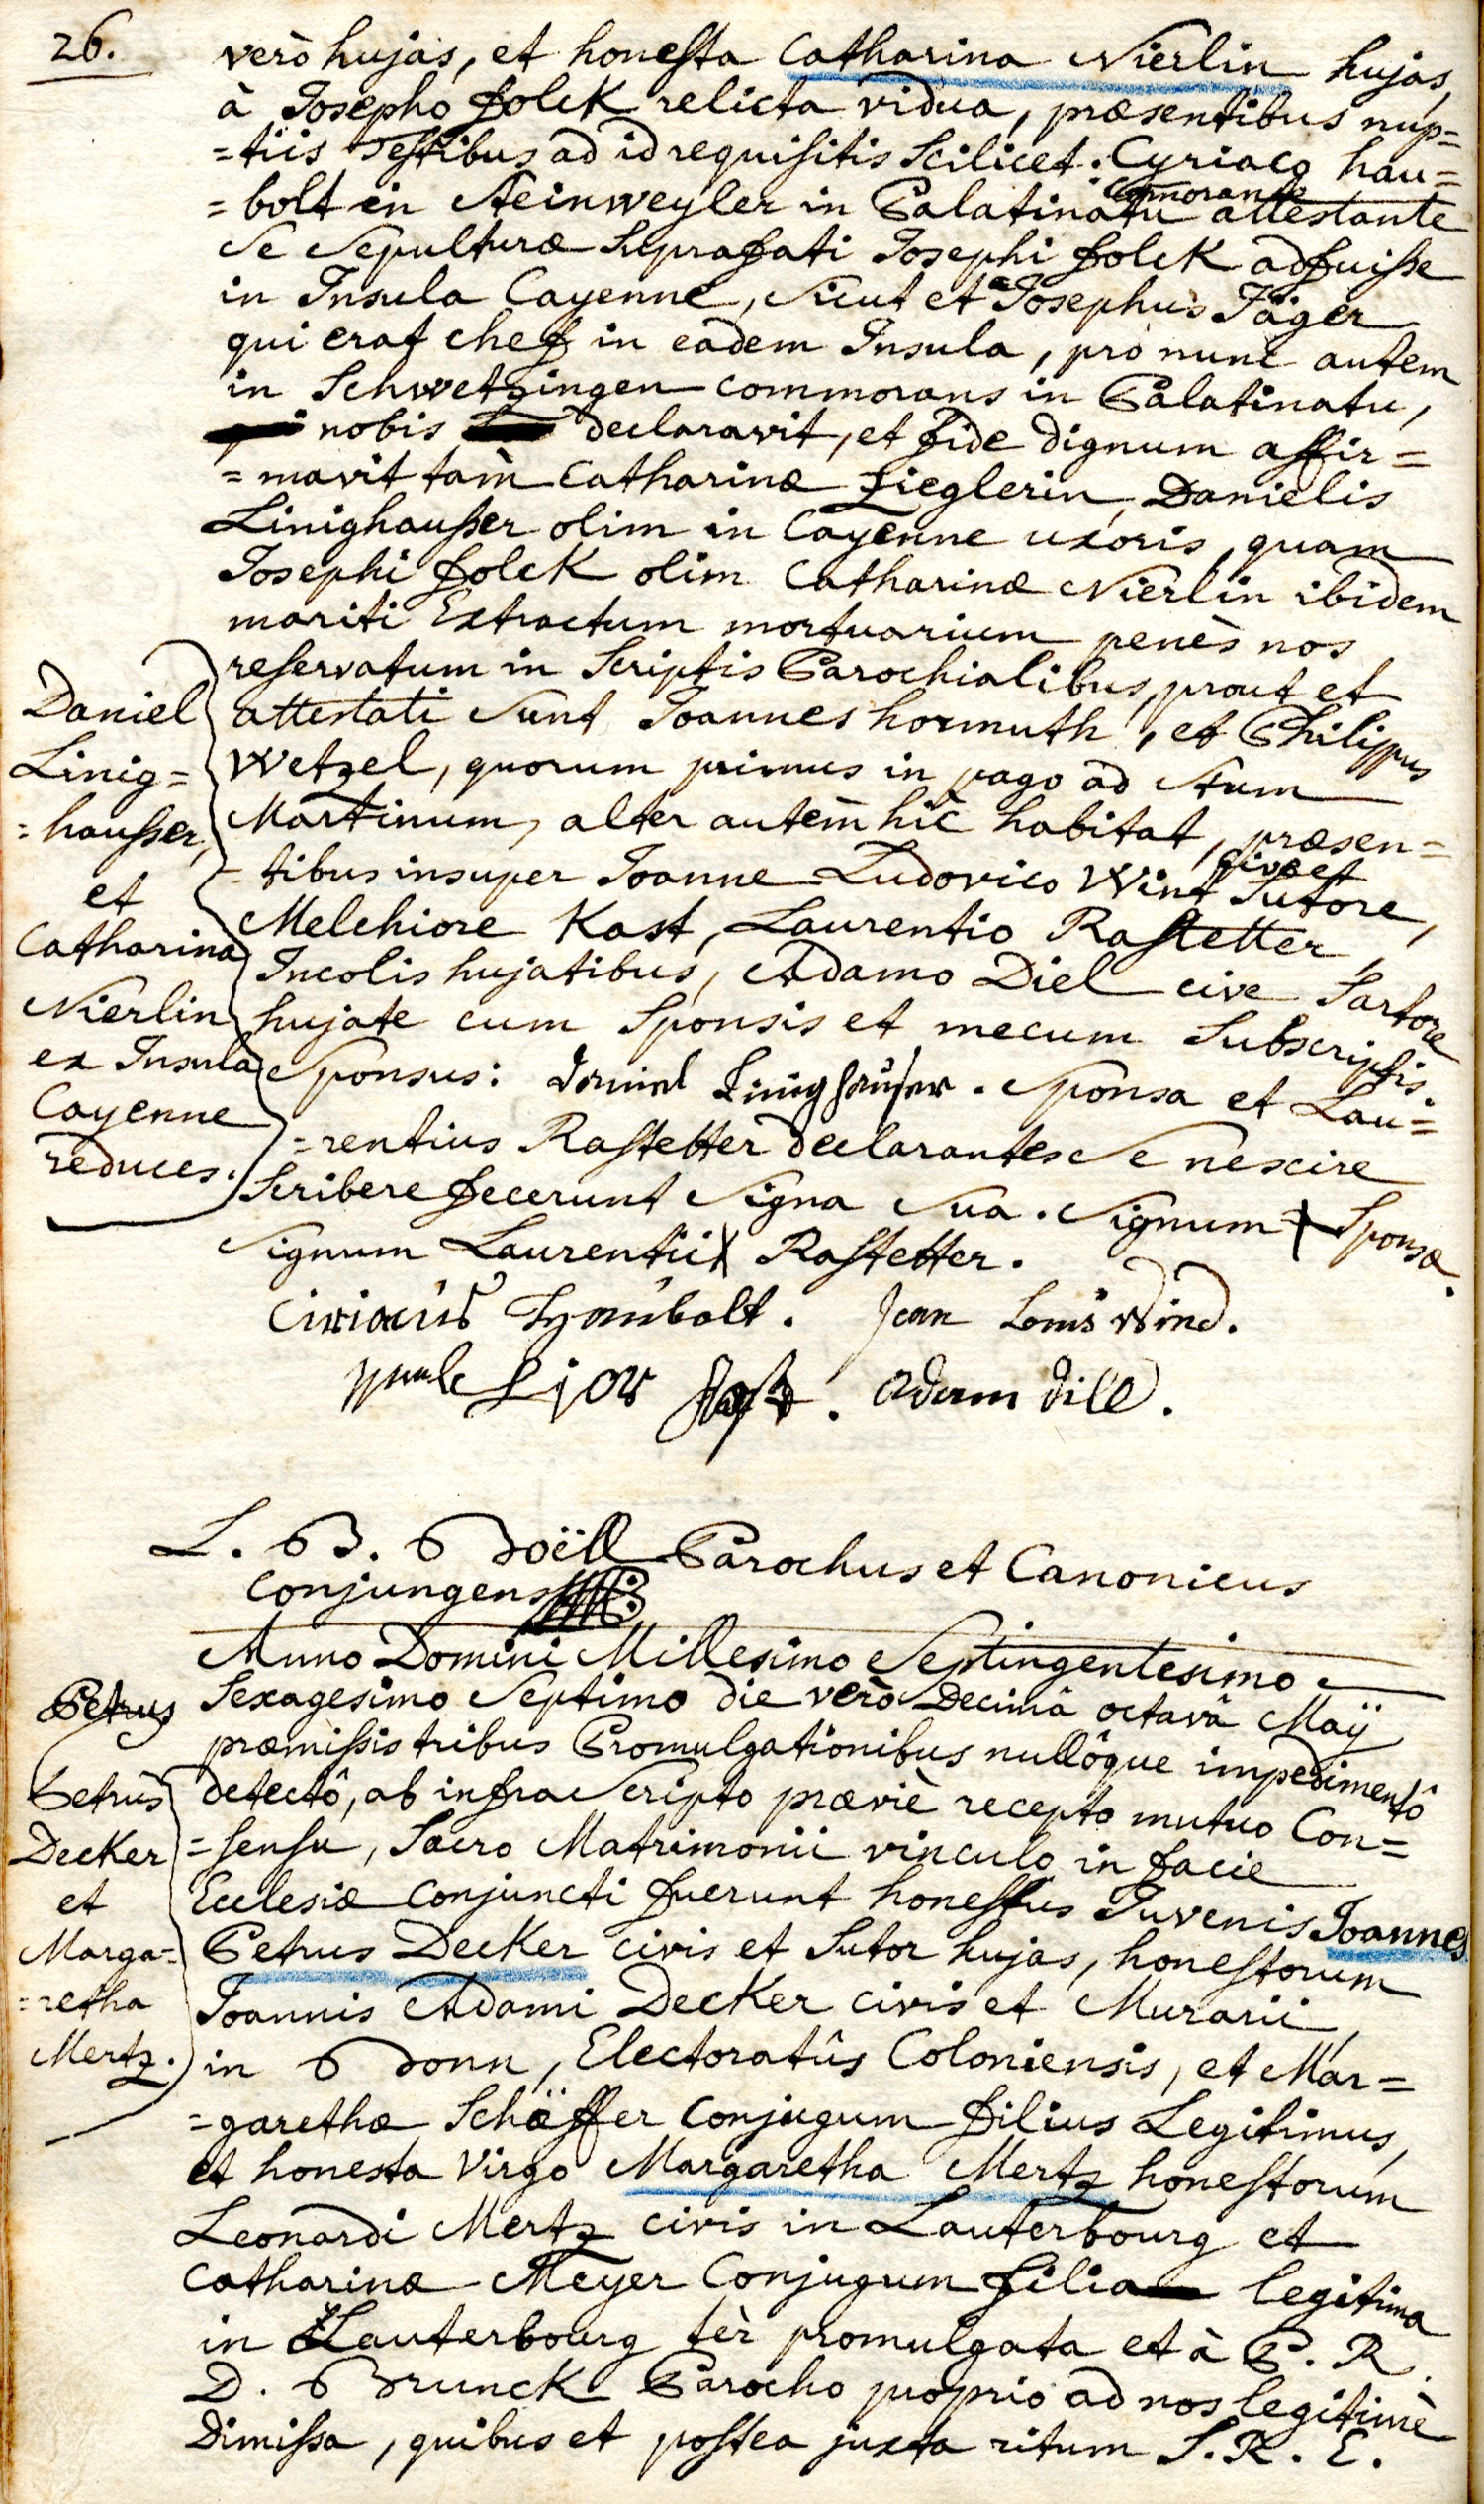 26.
verò hujas, et honesta Catharina Nierlin hujas,
à Josepho folck relicta vidua, præsentibus nup=
=tiis Testibus ad id requisitis Scilicet. Cyriaco hau=
commorante
=bolt in Steinweyler in Palatinatu attestante
Se Sepulturæ Suprafati Josephi folck adfuisse
in Insula Cayenne, Sicut et Josephus Jäger
qui erat chef in eadem Insula, pro nunc autem
in Schwetzingen commorans in Palatinatu,
nobis declaravit, et fide dignum affir=
=mavit tam Catharinæ Zieglerin, Danielis
Linighausser olim in Cayenne uxoris, quam
Josephi folck olim Catharinæ Nierlin ibidem
mariti Extractum mortuarium penès nos
reservatum in Scriptis Parochialibus, prout et
attestati Sunt Joannes hormuth, et Philippus
Wetzel, quorum primus in pago ad Stum
Martinum, alter autem hic habitat, præsen=
cive et
=tibus insuper Joanne Ludovico Wint Sutore,
Melchiore Kast, Laurentio Rastetter,
Incolis hujatibus, Adamo Diel cive Sartore
hujate cum Sponsis et mecum Subscriptis.
Sponsus: Daniel Linighauser. Sponsa et Lau=
=rentius Rastetter declarantes Se nescire
Scribere fecerunt Signa Sua. Signum + Sponsæ.
Signum Laurentii X Rastetter.
Ciriacus Haubolt. Jean Louis Wind.
adam dill.
Daniel
Linig=
=hausser,
et
Catharina
Nierlin
ex Insula
Cayenne
reduces.
L. B. Boëll Parochus et Canonicus
Conjungens
Anno Domini Millesimo Septingentesimo
Sexagesimo Septimo die verò Decimâ octavâ Maÿ
præmissis tribus Promulgationibus nullôque impedimentô
detectô, ab infra Scripto præviè recepto mutuo Con=
=sensu, Sacro Matrimonii vinculo in facie
Ecclesiæ conjuncti fuerunt honestus Juvenis Joannes
Petrus Decker civis et Sutor hujas, honestorum
Joannis Adami Decker civis et Murarii
in Bonn, Electoratûs Coloniensis, et Mar=
=garethæ Schäffer Conjugum filius Legitimus,
et honesta Virgo Margaretha Mertz honestorum
Leonardi Mertz civis in Lauterbourg et
Catharinæ Meyer Conjugum filia legitima
in Lauterbourg tèr promulgata et à P. R.
D. Brunck Parocho proprio ad nos legitimè
Dimissa, quibus et postea juxta ritum S. R. E.
Petrus
Petrus
Decker
et
Marga=
=retha
Mertz.